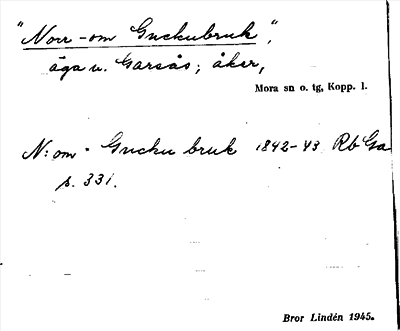 "Norr-om Guckubruk",
äga u. Garsås; åker,
Mora sn o. tg, Kopp. l.
N: om Gucku bruk 1842-43 Rb Ga
p. 331.
Bror Lindén 1945.